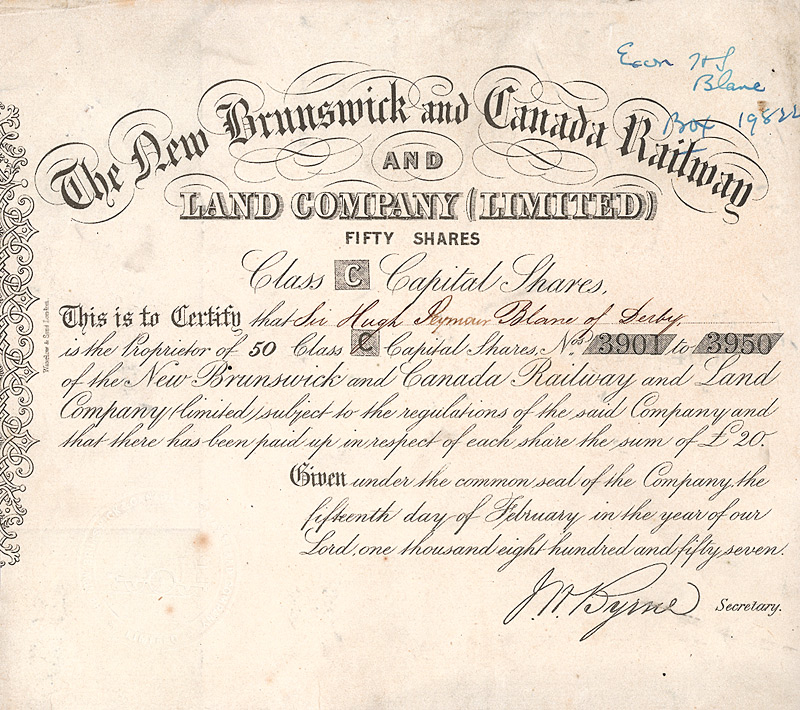 Econ HS
Blane
Box 19822
The New Brunswick and Canada Railway
AND
LAND COMPANY (LIMITED)
FIFTY SHARES
Class C Capital Shares.
This is to Certify that Sir Hugh Seymour Blane of Derby.
is the Proprietor of 50 Class C Capital Shares, Nos. 3901 to 3950
of the New Brunswick and Canada Railway and Land
Company (limited) subject to the regulations of the said Company and
that there has been paid up in respect of each share the sum of £20.
Given under the common seal of the Company, the
fifteenth day of February in the year of our
Lord, one thousand eight hundred and fifty seven.
J. W. Byrne Secretary.
Waterlow & Sons London.